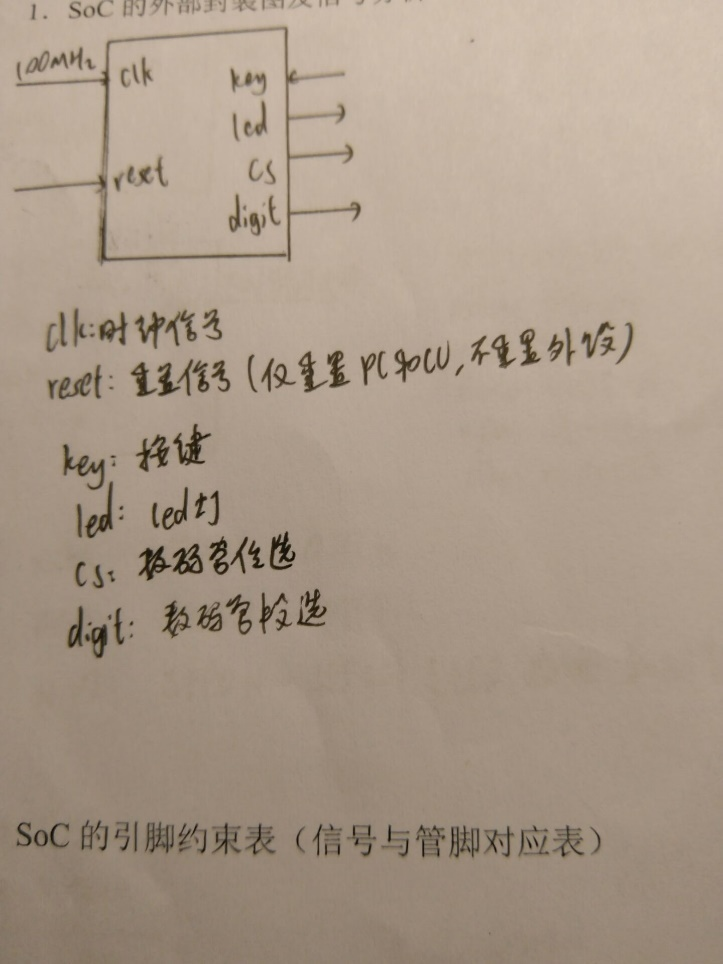 1. SoC 的外部封装图及信号
100MHz
clk
key
led
reset
cs
digit
clk:时钟信号
reset: 重置信号(仅重置PC和CU,不重置外设)
key: 按键
led: led灯
cs: 数码管位选
digit: 数码管段选
SoC 的引脚约束表（信号与管脚对应表）